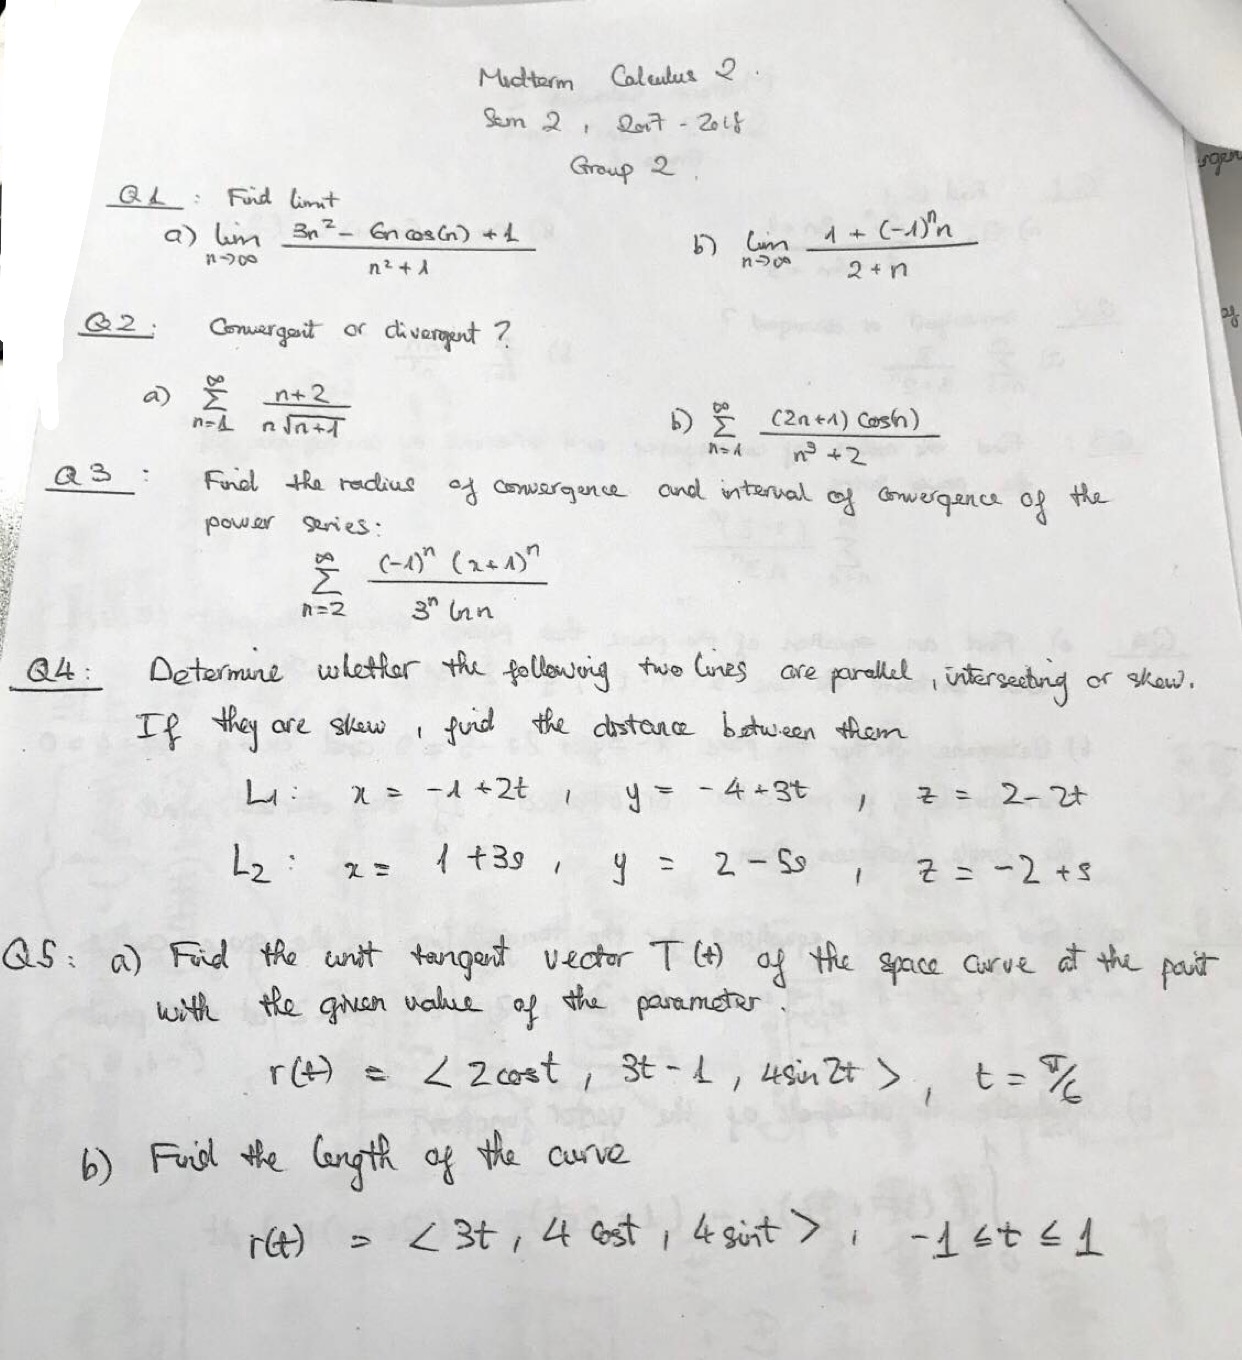 Midterm Calculus 2.
Sem 2, 2017 - 2018
Group 2.
Q1 : Find limit
a) lim n→∞ (3n² - 6n cos(n) + 1)/(n² + 1)    b) lim n→∞ (1 + (-1)ⁿn)/(2 + n)
Q2: Convergent or divergent ?
a) ∞ Σ n=1 (n+2)/(n√(n+1))    b) ∞ Σ n=1 ((2n+1) cos(n))/(n³ + 2)
Q3 : Find the radius of convergence and interval of convergence of the
power series:
∞ Σ n=2 ((-1)ⁿ (x+1)ⁿ)/(3ⁿ ln n)
Q4: Determine whether the following two lines are parallel, intersecting or skew.
If they are skew, find the distance between them
L1: x = -1 + 2t, y = -4 + 3t, z = 2 - 2t
L2: x = 1 + 3s, y = 2 - 5s, z = -2 + s
Q5: a) Find the unit tangent vector T(t) of the space curve at the point
with the given value of the parameter.
r(t) = < 2cost, 3t - 1, 4sin 2t >, t = π/6
b) Find the length of the curve
r(t) = < 3t, 4 cost, 4 sint >, -1 ≤ t ≤ 1